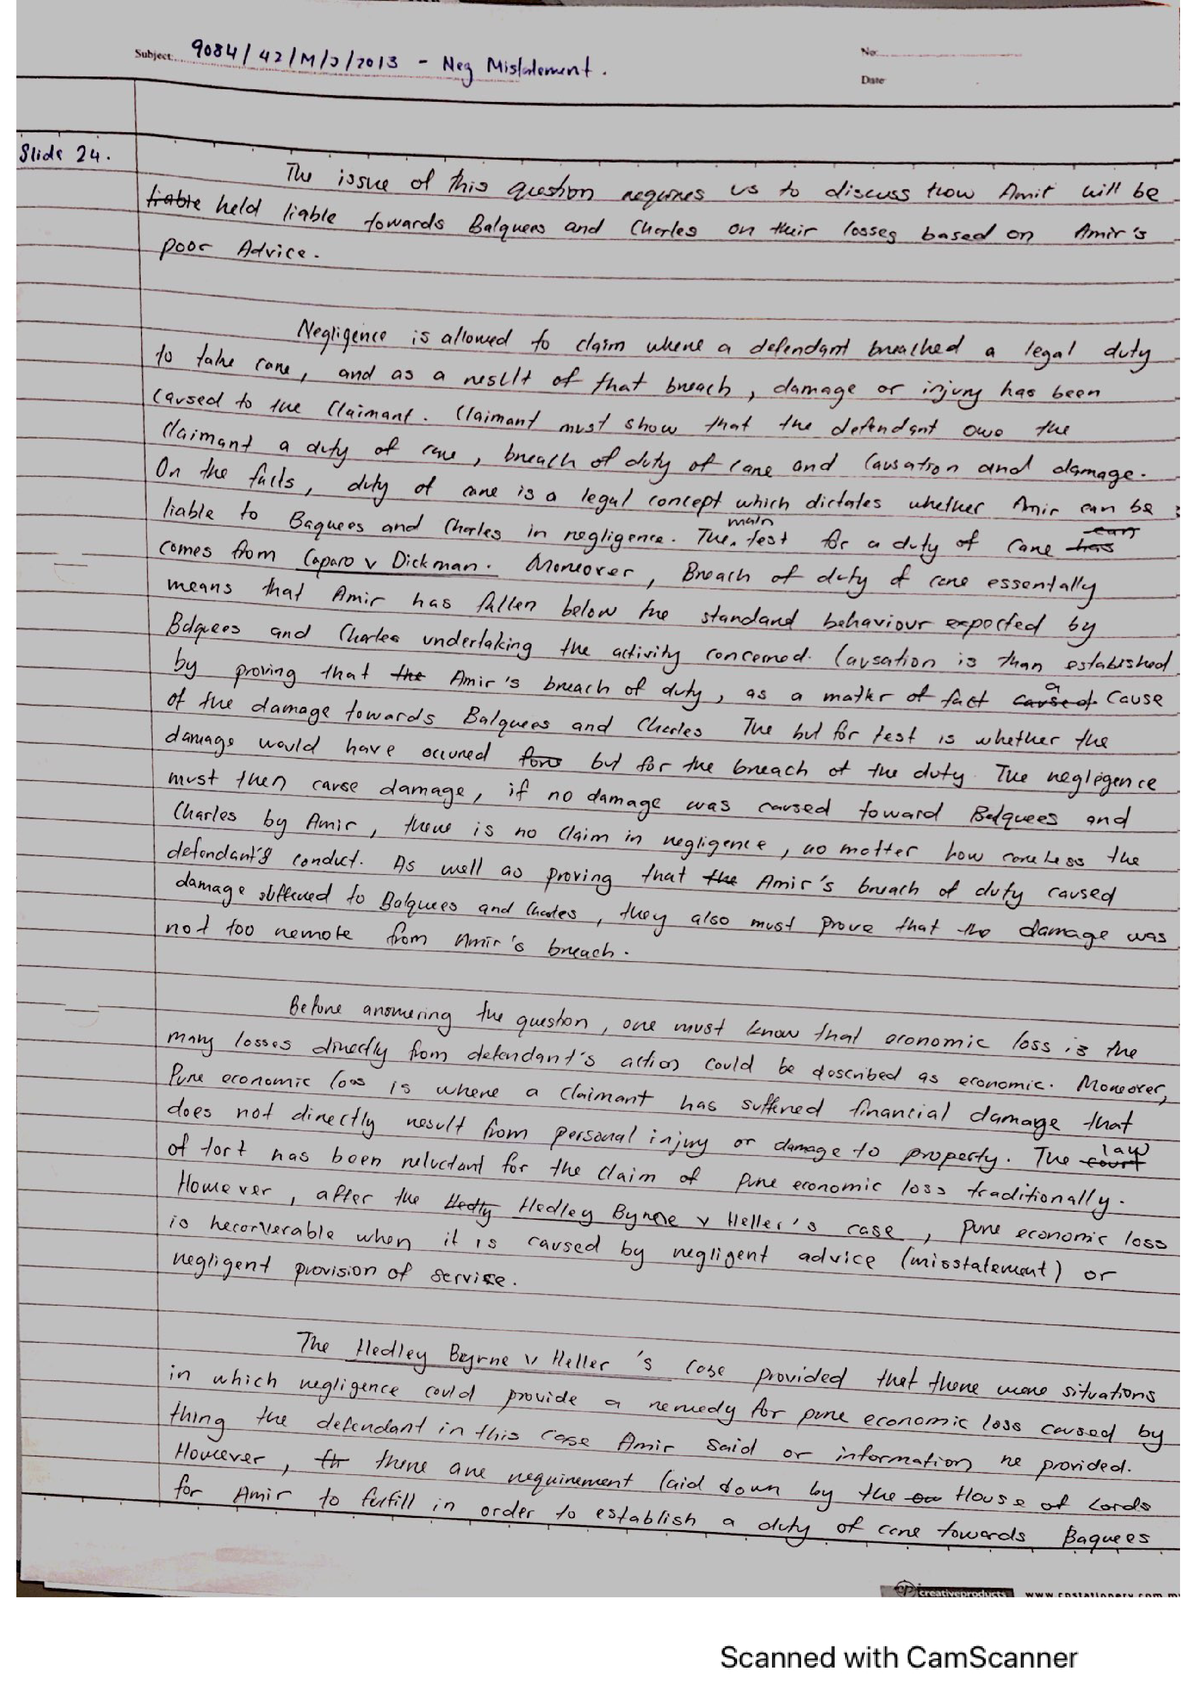 Subject: 9084/42/M/J/2013 - Neg Mistatement.
No:
Date:
Slide 24.
The issue of this question requires us to discuss how Amir will be
liable held liable towards Balquees and Charles on their losses based on Amir's
poor Advice.
Negligence is allowed to claim where a defendant breached a legal duty
to take care, and as a result of that breach, damage or injury has been
caused to the Claimant. Claimant must show that the defendant owo the
Claimant a duty of care, breach of duty of care and Causation and damage.
On the facts, duty of care is a legal concept which dictates whether Amir can be
liable to Baquees and Charles in negligence. The main test for a duty of care has can
comes from Caparo v Dickman. Moreover, Breach of duty of care essentally
means that Amir has fallen below the standard behaviour expected by
Balquees and Charles undertaking the activity concerned. Causation is than established
by proving that the Amir's breach of duty, as a matter of fact caused a cause
of the damage towards Balquees and Charles The but for test is whether the
damage would have occured but for the breach of the duty. The neglegence
must then cause damage, if no damage was caused toward Balquees and
Charles by Amir, there is no claim in negligence, no matter how careless the
defendant's conduct. As well as proving that the Amir's breach of duty caused
damage suffered to Balquees and Charles, they also must prove that the damage was
not too remote from Amir's breach.
Before answering the question, one must know that economic loss is the
many losses directly from defendant's action could be described as economic. Moreover,
Pure economic loss is where a claimant has suffered financial damage that
does not directly result from personal injury or damage to property. The court law
of tort has been reluctant for the claim of pure economic loss traditionally.
However, after the Hedly Hedley Byrne v Heller's case, pure economic loss
is recorverable when it is caused by negligent advice (misstatement) or
negligent provision of service.
The Hedley Byrne v Heller's case provided that there were situations
in which negligence could provide a remedy for pure economic loss caused by
thing the defendant in this case Amir said or information he provided.
However, th there are requirement laid down by the House of Lords
for Amir to fulfill in order to establish a duty of care towards Baquees
creativeproducts
Scanned with CamScanner